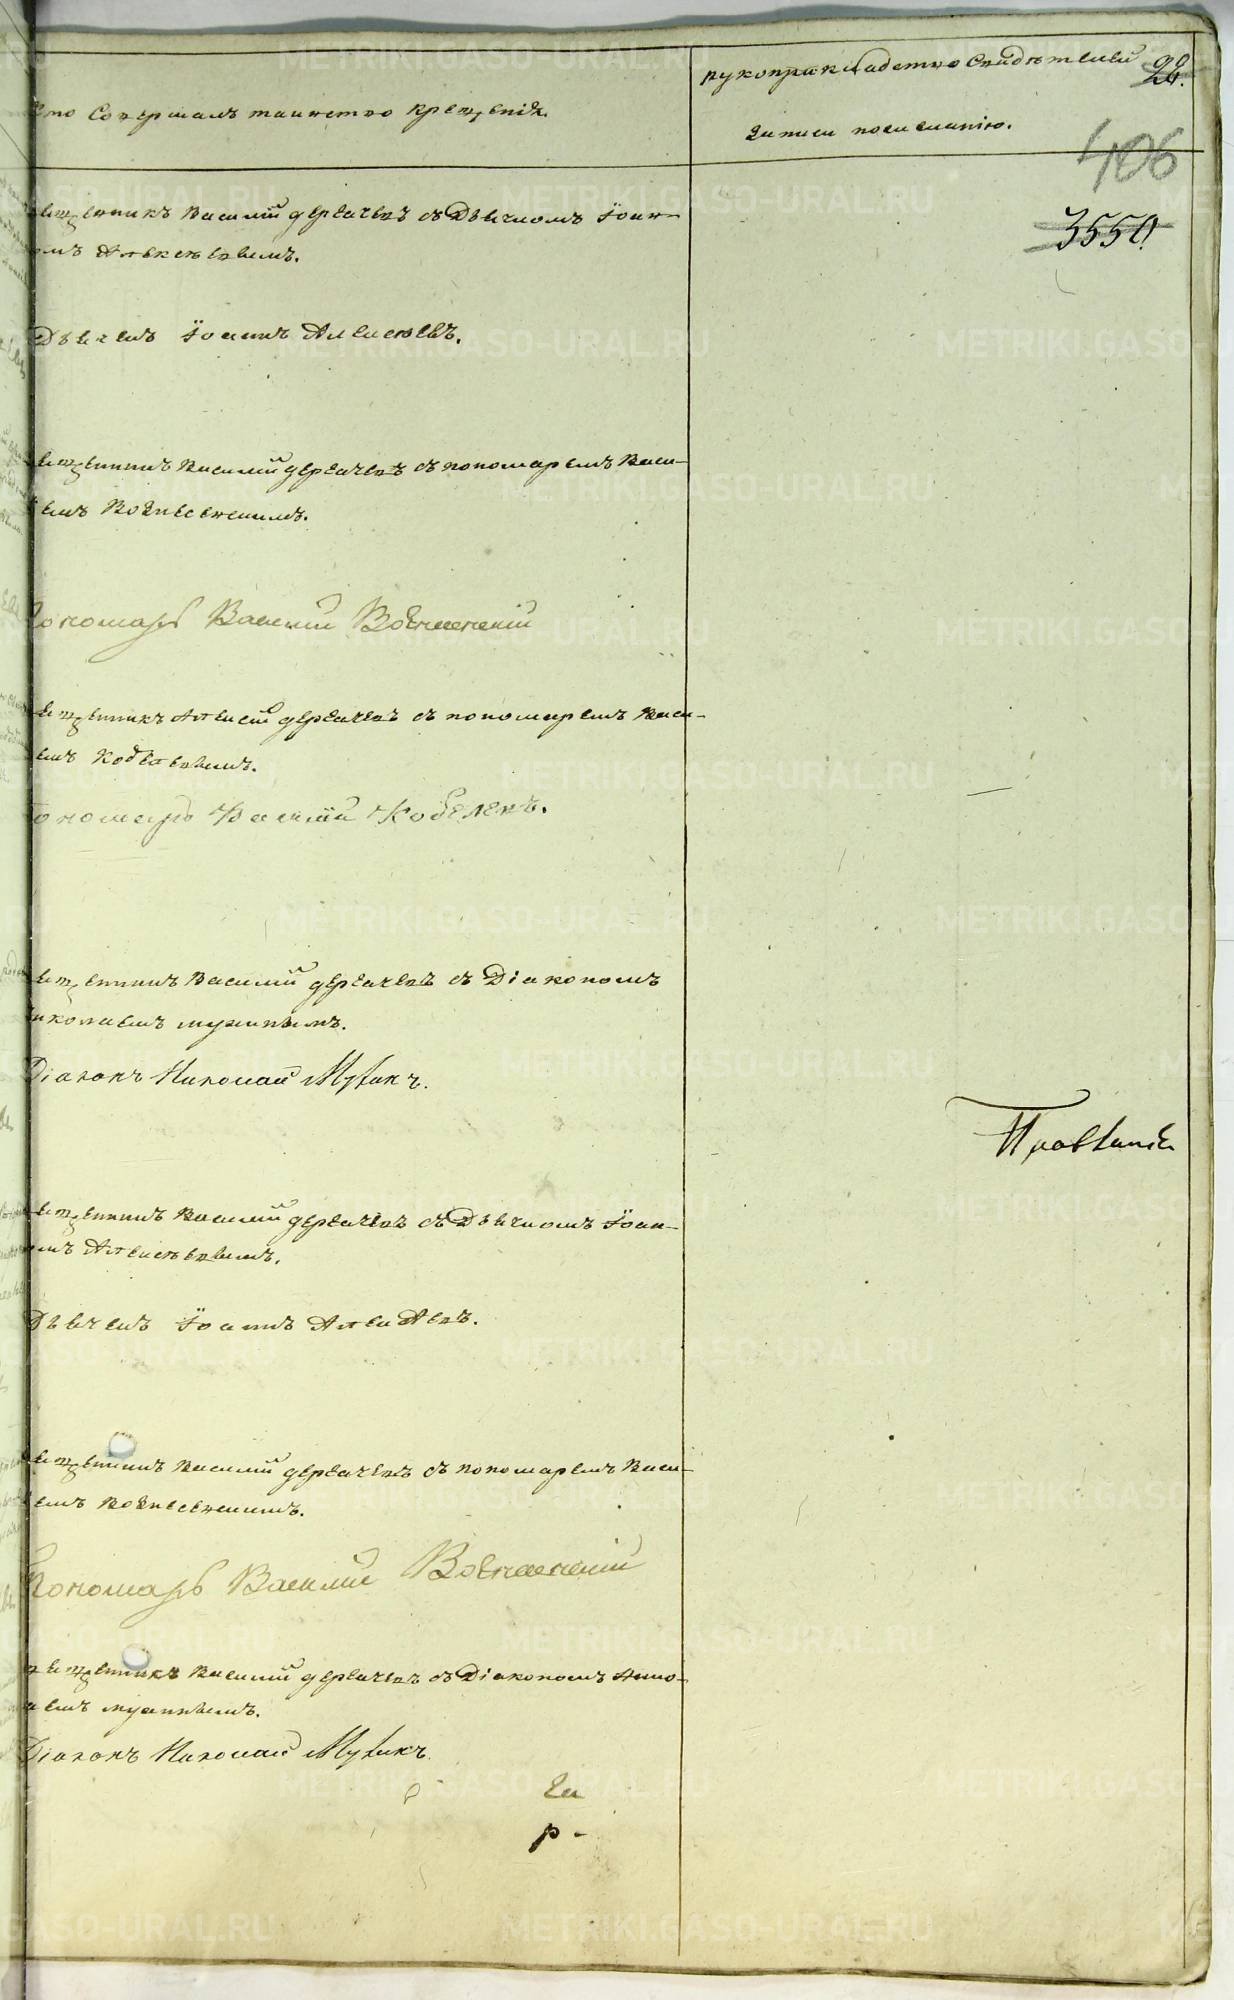 Кто Совершалъ таинство крещенія.
рукоприкладство Свидѣтелей
записи пожеланію.
406
3550
вященникъ Василій деркачевъ съ Дьячкомъ Іоан-
омъ Алексѣевымъ.
Дьячекъ Іоаннъ Алексѣевъ.
вященникъ Василій деркачевъ съ пономаремъ Васи-
емъ Вознесенскимъ.
Пономарь Василій Вознесенскій
вященникъ Алексій деркачевъ съ пономаремъ Васи-
емъ Кобелевымъ.
Пономарь Василій Кобелевъ.
вященникъ Василій деркачевъ съ Діакономъ
иколаемъ мухинымъ.
Діаконъ Николай Мухинъ.
вященникъ Василій деркачевъ съ Дьячкомъ Іоан-
омъ Алексѣевымъ.
Дьячекъ Іоаннъ Алексѣевъ.
вященникъ Василій деркачевъ съ пономаремъ Васи-
емъ Вознесенскимъ.
Пономарь Василій Вознесенскій
вященникъ Василій деркачевъ съ Діакономъ Нико-
аемъ мухинымъ.
Діаконъ Николай Мухинъ.
р-
METRIKI.GASO-URAL.RU